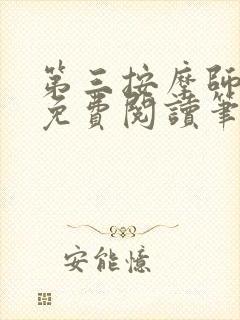 第三按摩師
免費閱讀筆
安能憶